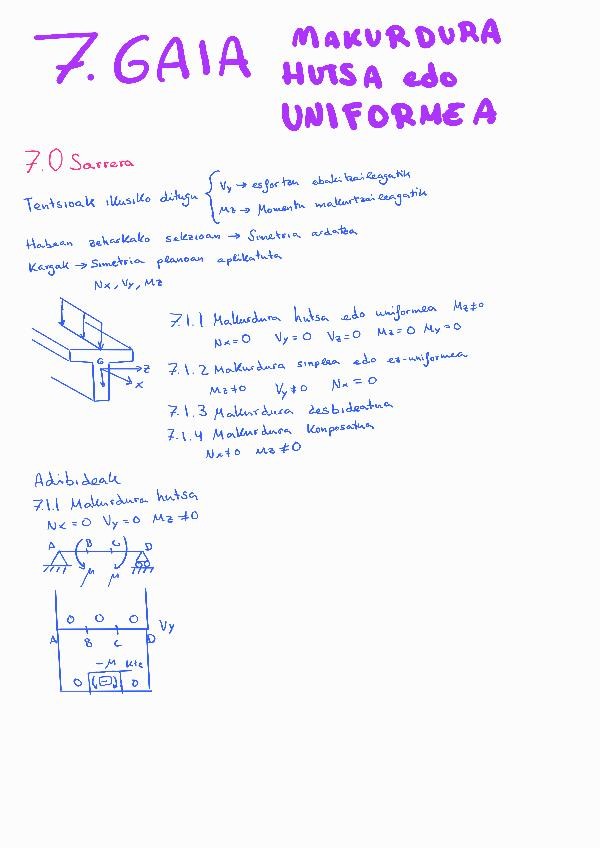 7. GAIA MAKURDURA
HUTSA edo
UNIFORMEA
7.0 Sarrera
Tentsioak ikusiko ditugu
Vy → esfortzu ebakitzaileagatik
Mz → Momentu makurtzaileagatik
Habean zeharkako sekzioan → Simetria ardatza
Kargak → Simetria planoan aplikatuta
Nx, Vy, Mz
G
z
x
7.1.1 Makurdura hutsa edo uniformea Mz≠0
Nx=0 Vy=0 Vz=0 Mz=0 My=0
7.1.2 Makurdura sinplea edo ez-uniformea
Mz≠0 Vy≠0 Nx=0
7.1.3 Makurdura desbideatua
7.1.4 Makurdura konposatua
Nx≠0 Mz≠0
Adibideak
7.1.1 Makurdura hutsa
Nx=0 Vy=0 Mz≠0
A B C D
M M
0 0 0 Vy
A B C D
-M kte
0 (-) 0